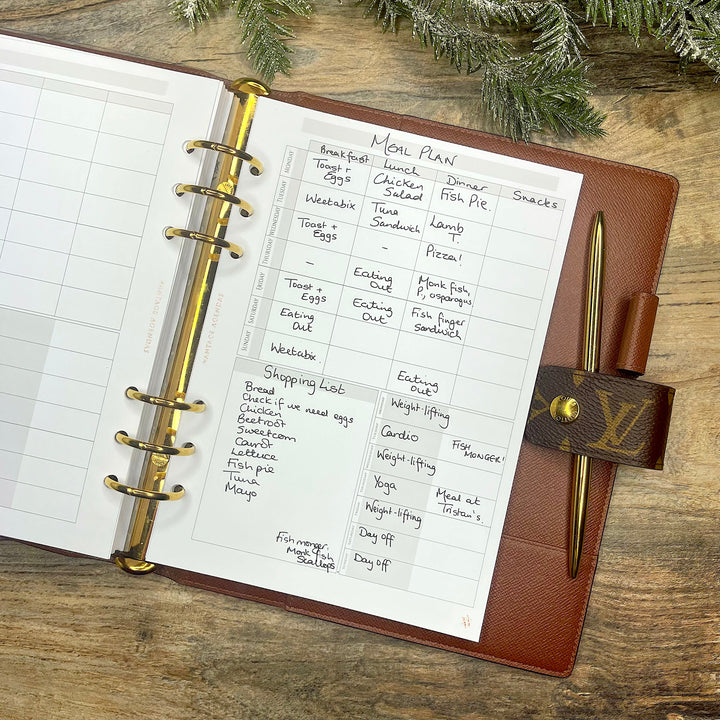 MEAL PLAN
Breakfast Lunch Dinner Snacks
MONDAY
Toast +
Eggs
Chicken
Salad
Fish Pie.
TUESDAY
Weetabix
Tuna
Sandwich
Lamb
T.
WEDNESDAY
Toast +
Eggs
-
Pizza!
THURSDAY
-
Eating
Out
Monkfish,
P, asparagus
FRIDAY
Toast +
Eggs
Eating
Out
Fish finger
Sandwich
SATURDAY
Eating
Out
SUNDAY
Weetabix.
Eating
Out
Shopping List
Bread
Check if we need eggs
Chicken
Beetroot
Sweetcorn
Carrot
Lettuce
Fish pie
Tuna
Mayo
Fish monger.
Monk fish
Scallops
Weight-lifting
Cardio
FISH
MONGER!
Weight-lifting
Yoga
Meal at
Tristan's.
Weight-lifting
Day off
Day off
VANTAGE AGENDAS
VANTAGE AGENDAS
LV